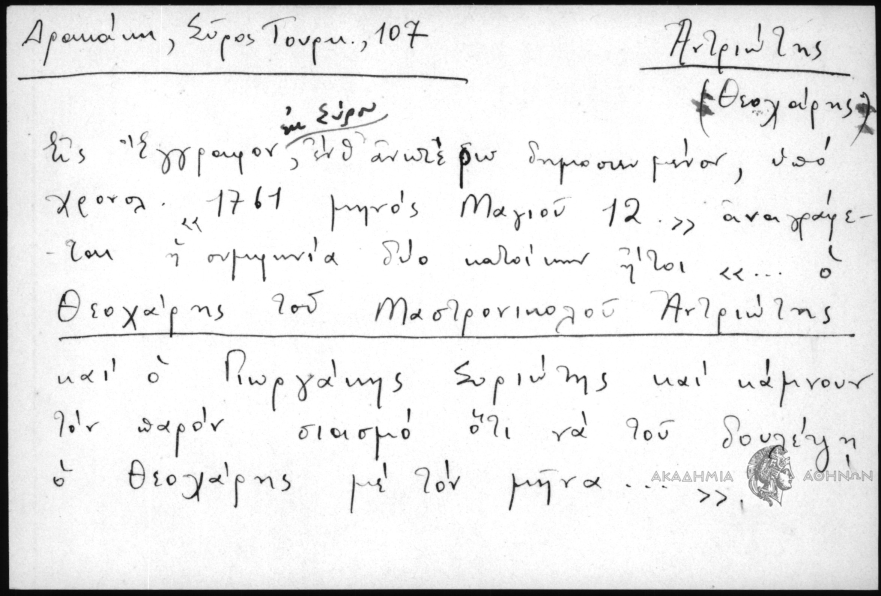 Δρακάκη, Σῦρος Τουρκ., 107
Ἀντριώτης
(Θεοχάρης)
ἐκ Σύρου
Εἰς ἔγγραφον, ἐνθ' ἀνωτέρω δημοσιευμένον, ὑπό
χρονολ. "1761 μηνός Μαγιοῦ 12." ἀναγράφε-
-ται ἡ συμφωνία δύο κατοίκων ἤτοι "... ὁ
Θεοχάρης τοῦ Μαστρονικολοῦ Ἀντριώτης
καί ὁ Γιωργάκης Συριώτης καί κάμνουν
τόν παρόν σιασμό ὅτι νά τοῦ δουλεύγη
ὁ Θεοχάρης μέ τόν μῆνα ... ".
ΑΚΑΔΗΜΙΑ ΑΘΗΝΩΝ